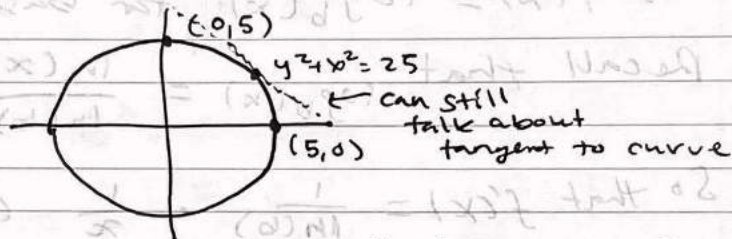 (0,5)
y²+x²= 25
← can still
talk about
tangent to curve
(5,0)